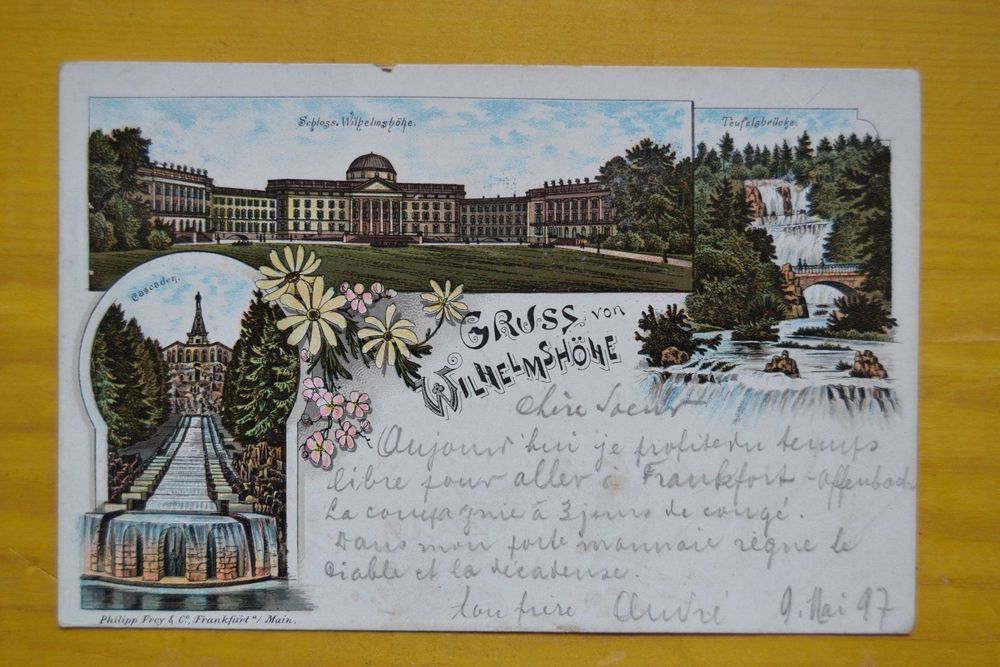 Schloss. Wilhelmshöhe.
Teufelsbrücke.
Cascaden.
GRUSS von
WILHELMSHÖHE
Chère Soeur
Aujourd'hui je profite du temps
libre pour aller à Frankfort-Offenbach
La compagnie à 3 jours de congé.
Dans mon porte monnaie règne le
diable et la décadense.
ton frère André 9. Mai 97
Philipp Frey & Co, Frankfurt a/Main.